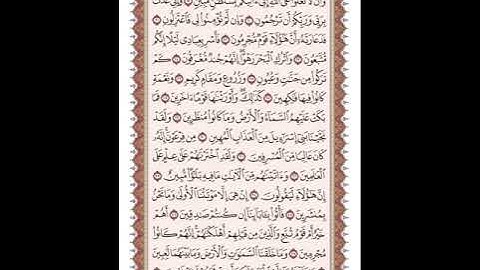 وَأَن لَّا تَعْلُوا۟ عَلَى ٱللَّهِ إِنِّىٓ ءَاتِيكُم بِسُلْطَٰنٍ مُّبِينٍ ۝ وَإِنِّى عُذْتُ
بِرَبِّى وَرَبِّكُمْ أَن تَرْجُمُونِ ۝ وَإِن لَّمْ تُؤْمِنُوا۟ لِى فَٱعْتَزِلُونِ ۝
فَدَعَا رَبَّهُۥٓ أَنَّ هَٰٓؤُلَآءِ قَوْمٌ مُّجْرِمُونَ ۝ فَأَسْرِ بِعِبَادِى لَيْلًا إِنَّكُم
مُّتَّبَعُونَ ۝ وَٱتْرُكِ ٱلْبَحْرَ رَهْوًا إِنَّهُمْ جُندٌ مُّغْرَقُونَ ۝ كَمْ
تَرَكُوا۟ مِن جَنَّٰتٍ وَعُيُونٍ ۝ وَزُرُوعٍ وَمَقَامٍ كَرِيمٍ ۝ وَنَعْمَةٍ
كَانُوا۟ فِيهَا فَٰكِهِينَ ۝ كَذَٰلِكَ وَأَوْرَثْنَٰهَا قَوْمًا ءَاخَرِينَ ۝ فَمَا
بَكَتْ عَلَيْهِمُ ٱلسَّمَآءُ وَٱلْأَرْضُ وَمَا كَانُوا۟ مُنظَرِينَ ۝ وَلَقَدْ
نَجَّيْنَا بَنِىٓ إِسْرَٰٓءِيلَ مِنَ ٱلْعَذَابِ ٱلْمُهِينِ ۝ مِن فِرْعَوْنَ إِنَّهُۥ
كَانَ عَالِيًا مِّنَ ٱلْمُسْرِفِينَ ۝ وَلَقَدِ ٱخْتَرْنَٰهُمْ عَلَىٰ عِلْمٍ عَلَى
ٱلْعَٰلَمِينَ ۝ وَءَاتَيْنَٰهُم مِّنَ ٱلْءَايَٰتِ مَا فِيهِ بَلَٰٓؤٌا۟ مُّبِينٌ ۝
إِنَّ هَٰٓؤُلَآءِ لَيَقُولُونَ ۝ إِنْ هِىَ إِلَّا مَوْتَتُنَا ٱلْأُولَىٰ وَمَا نَحْنُ
بِمُنشَرِينَ ۝ فَأْتُوا۟ بِـَٔابَآئِنَآ إِن كُنتُمْ صَٰدِقِينَ ۝ أَهُمْ
خَيْرٌ أَمْ قَوْمُ تُبَّعٍ وَٱلَّذِينَ مِن قَبْلِهِمْ أَهْلَكْنَٰهُمْ إِنَّهُمْ كَانُوا۟
مُجْرِمِينَ ۝ وَمَا خَلَقْنَا ٱلسَّمَٰوَٰتِ وَٱلْأَرْضَ وَمَا بَيْنَهُمَا لَٰعِبِينَ